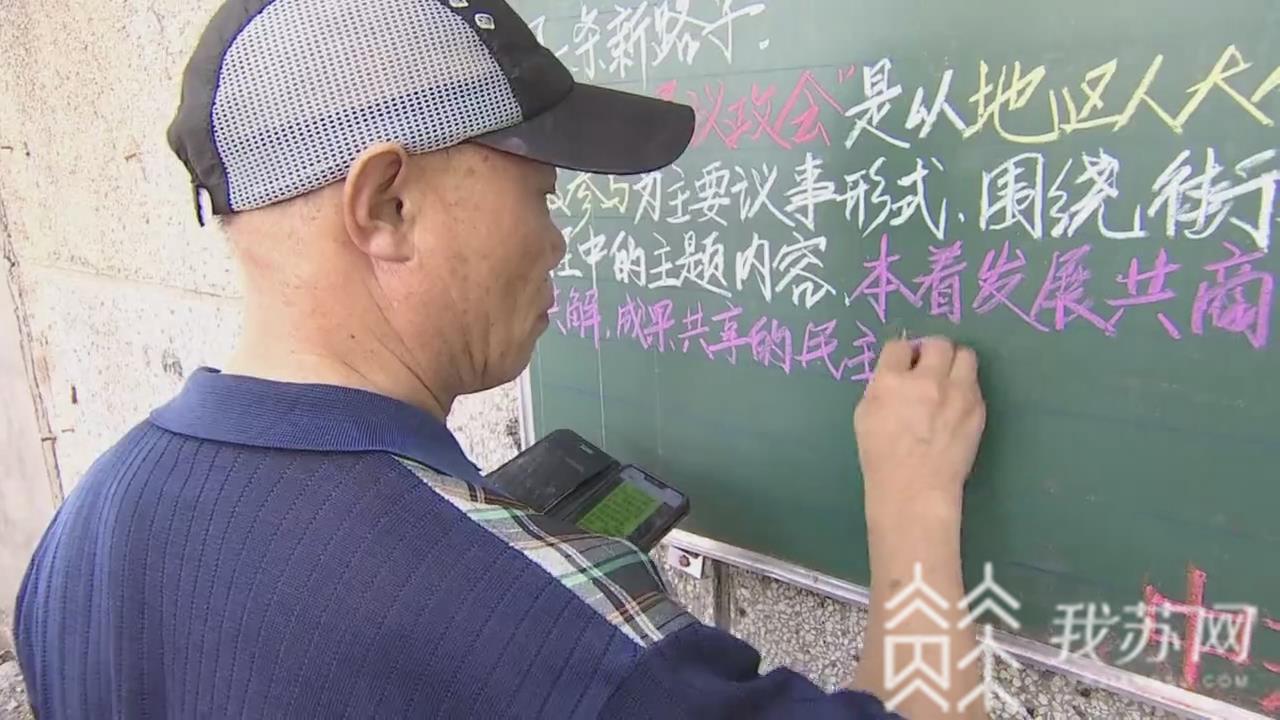 条新路子.
议政会"是从地区人大
参与为主要议事形式、围绕街
中的主题内容、本着发展共商
解、成果共享的民主
我苏网